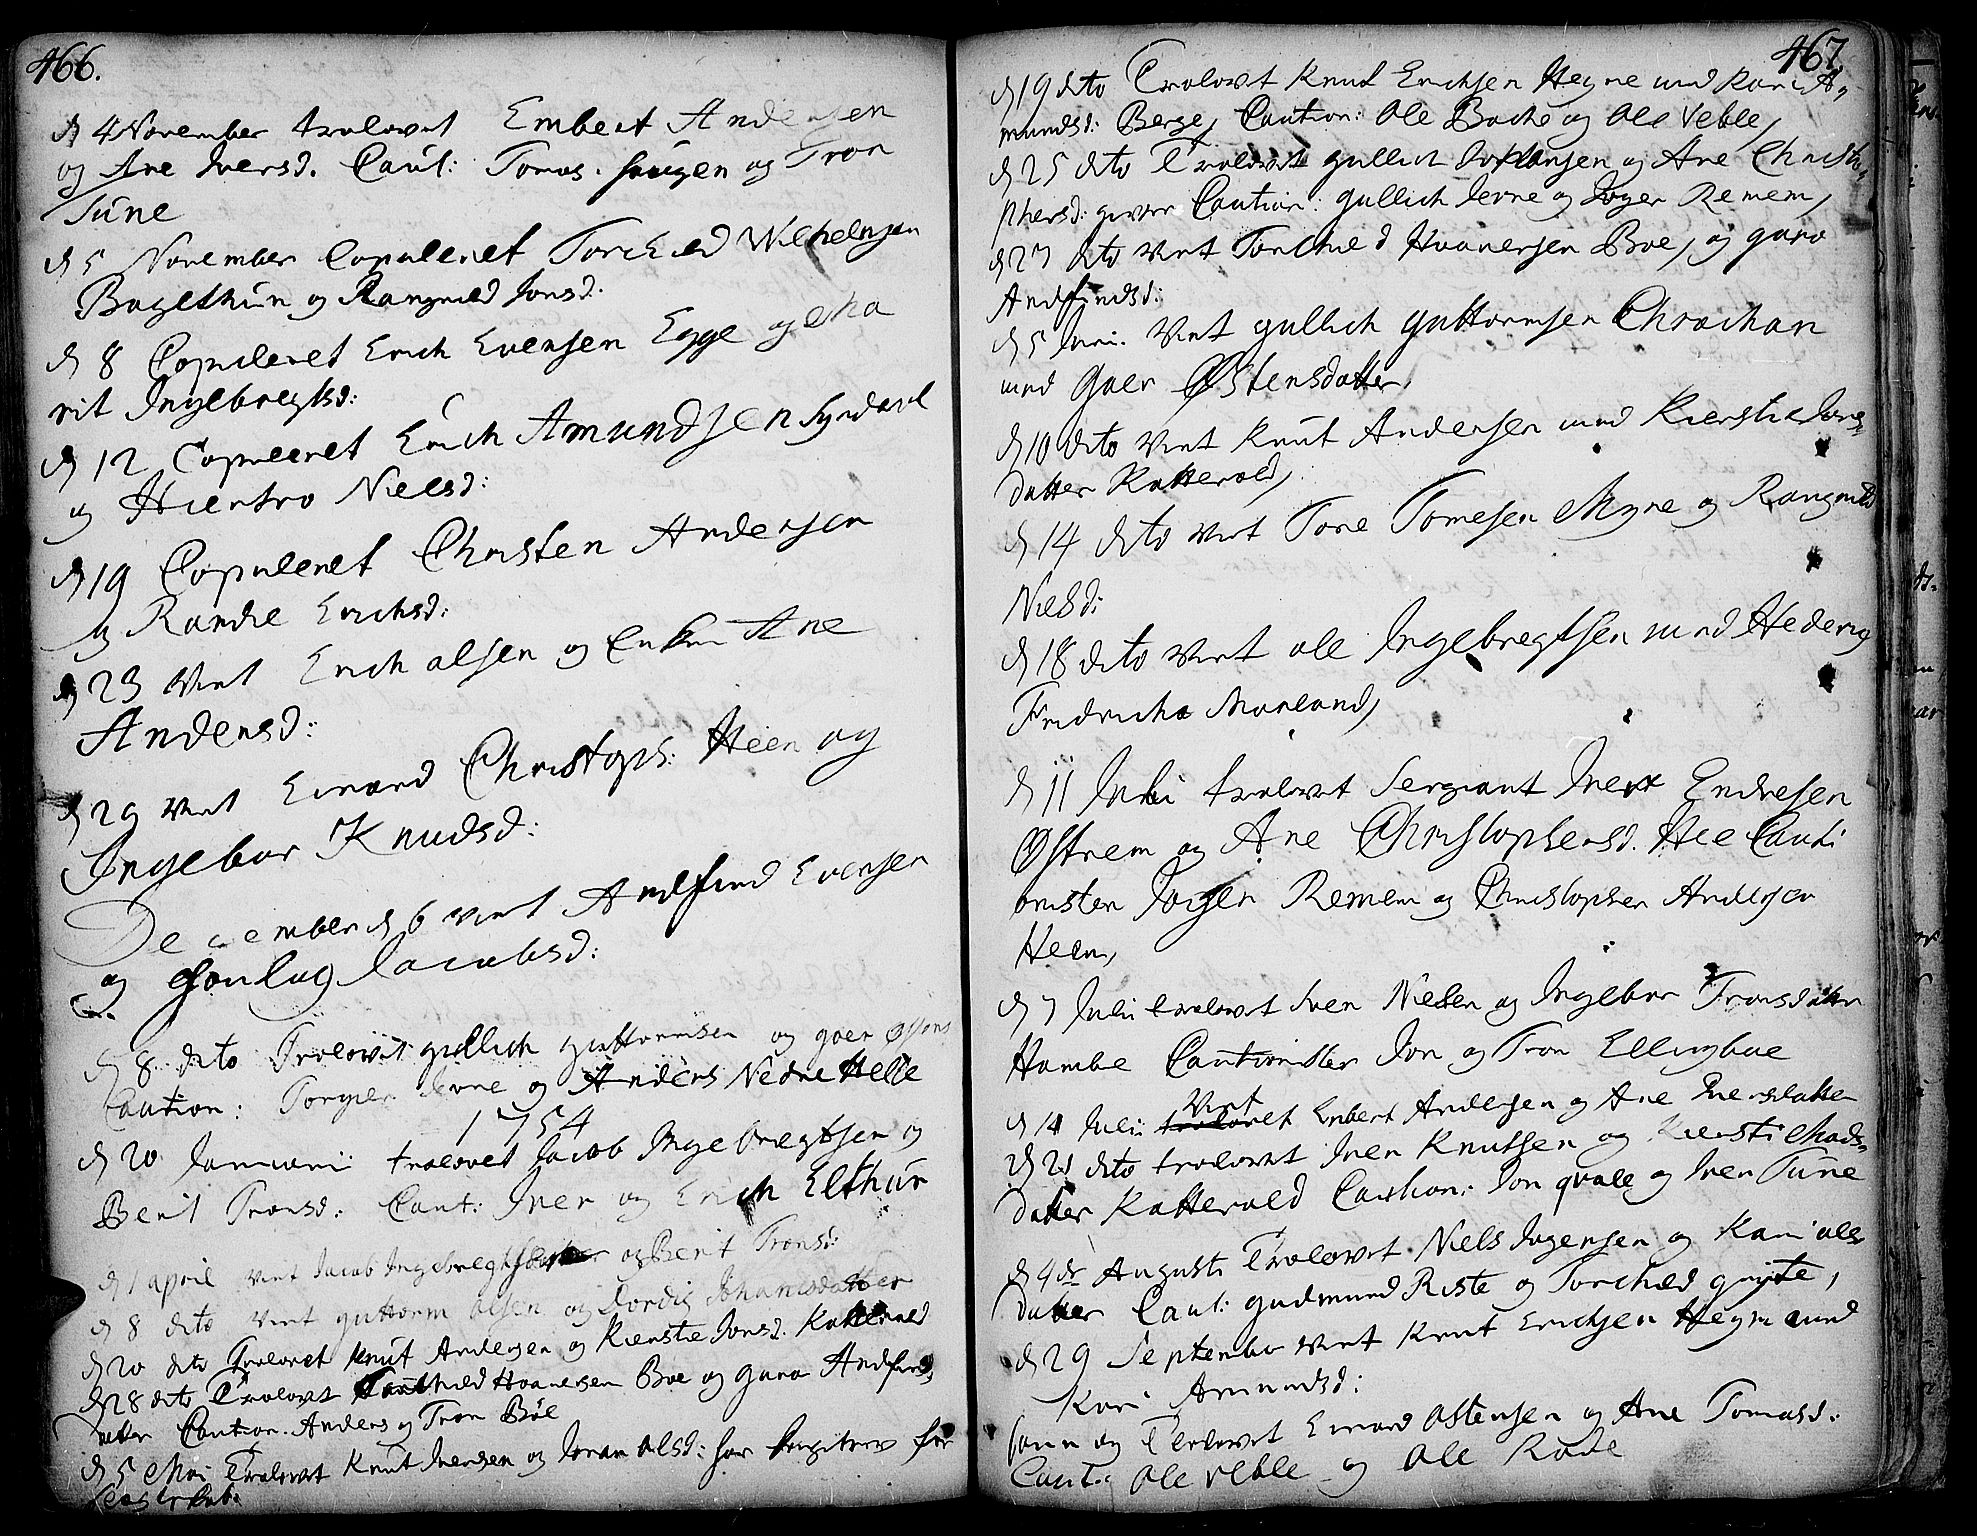 466.
d 4 November trolovet Embert Andersen
og Ane Iversd. Caut: Tomas Haugen og Tron
Tune
d 5 November Copuleret Torchild Wilhelmsen
Bagethun og Rangnild Jonsd:
d 8 Copuleret Erich Evensen Egge og Ma
rit Ingebregtsd:
d 12 Copuleret Erich Amundsen
og Nielsd:
d 19 Copuleret Christen Andersen
og Randie Erichsd:
d 23 viet Erich olsen og Enken Ane
Andersd:
d 29 viet Einard Christoph: Heen og
Ingebor Knudsd:
December d 6 viet Andfind Evensen
og Gonlug Jacobsd:
d 8 dito Trolovet gullich guttormsen og goer
Caution: Torgier Jevne og Anders Nedre Helle
1754
d 20 Januarii trolovet Jacob Ingebregtsen og
Berit Tronsd: Caut: Iver og Erich Elthun
d 1 april viet Jacob Ingebregtsen og Berit Tronsd:
d 8 dito viet guttorm olsen og Jordis Johanisdatter
d 20 dito Trolovet Knut Andersen og Kierstie Jonsd. Katterold
d 28 dito Trolovet Torchild Haaversen Boe og guro Andfinds
datter Caution. Anders og Tron Bøe
d 5 Mai Trolovet Knut Iversen og Joran olsd: har for
467
d 19 dito Trolovet Knud Erichsen Hegne med Kari A,
mundsd: Berge, Caution: Ole Bache og Ole Veble,
d 25 dito Trolovet gullich og Ane Christo,
phersd: Caution: gullich Jevne og Joger Remem,
d 27 dito viet Torchild Haaversen Boe, og guro
Andfindsd:
d 5 Juni. viet gullich guttormsen
med goer Østensdatter,
d 10 dito viet Knut Andersen med Kierstie Jons
datter Katterold,
d 14 dito viet Tore Tomesen Myre og Rangnild
Nielsd:
d 18 dito viet ole Ingebregtsen med Hedevig
Fridricha Morland,
d 11 Juli trolovet Sergiant Iver Endresen
Østrem og Ane Christophersd. Hee Cauti
onister Jorgen Remem og Christopher Andersen
Heen,
d 7 Julii trolovet Iver Nielsen og Ingebor Tronsdatter
Hambe Cautionister Jon og Tron Ellingbøe
viet
d 14 Julii trolovet Embert Andersen og Ane Iversdatter
d 21 dito trolovet Iver Knutsen og Kiersti Mads,
datter Katterold Caution: Jon qvale og Iver Tune
d 4de Augusti Trolovet Niels Jogensen og Kari ols
datter Caut: gudmund Riste og Torchild
d 29 September viet Knut Erichsen Hegne med
Kari Amundsd:
samme og Trolovet Einard Ostensen og Ane Tomasd:
Caut: Ole Veble og Ole Rode